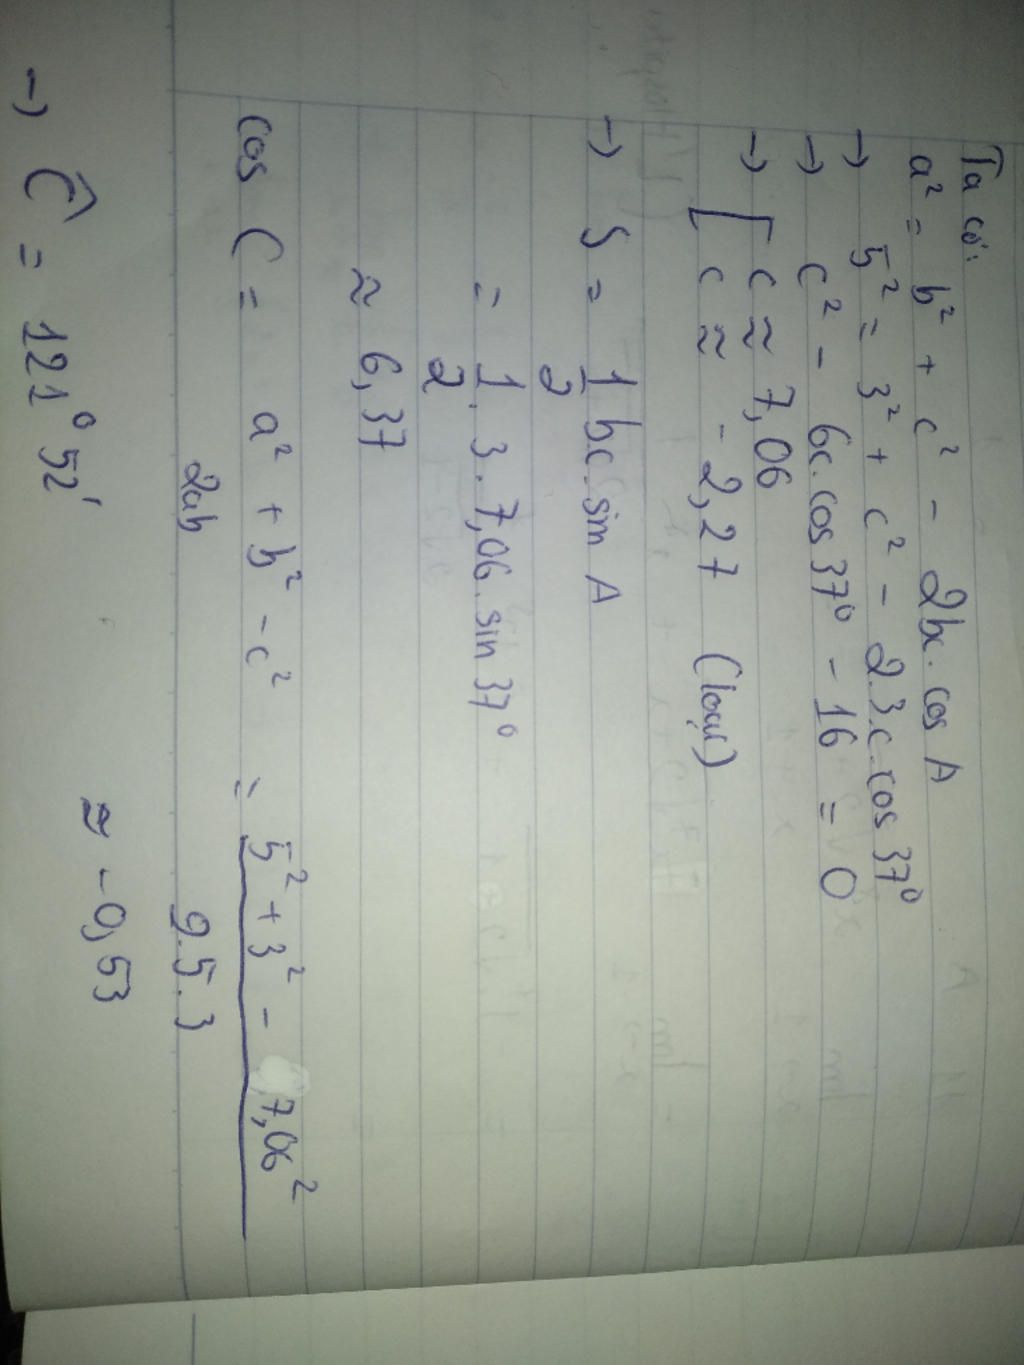 Ta có:
a² = b² + c² - 2bc. cos A
→ 5² = 3² + c² - 2.3.c.cos 37⁰
→ c² - 6c.cos 37⁰ - 16 = 0
→ [ c ≈ 7,06
[ c ≈ -2,27 (loại)
→ S = 1/2 bc. sin A
= 1/2 . 3 . 7,06. sin 37⁰
≈ 6,37
cos C = (a² + b² - c²)/2ab = (5² + 3² - 7,06²)/2.5.3
≈ -0,53
→ Ĉ = 121⁰ 52'